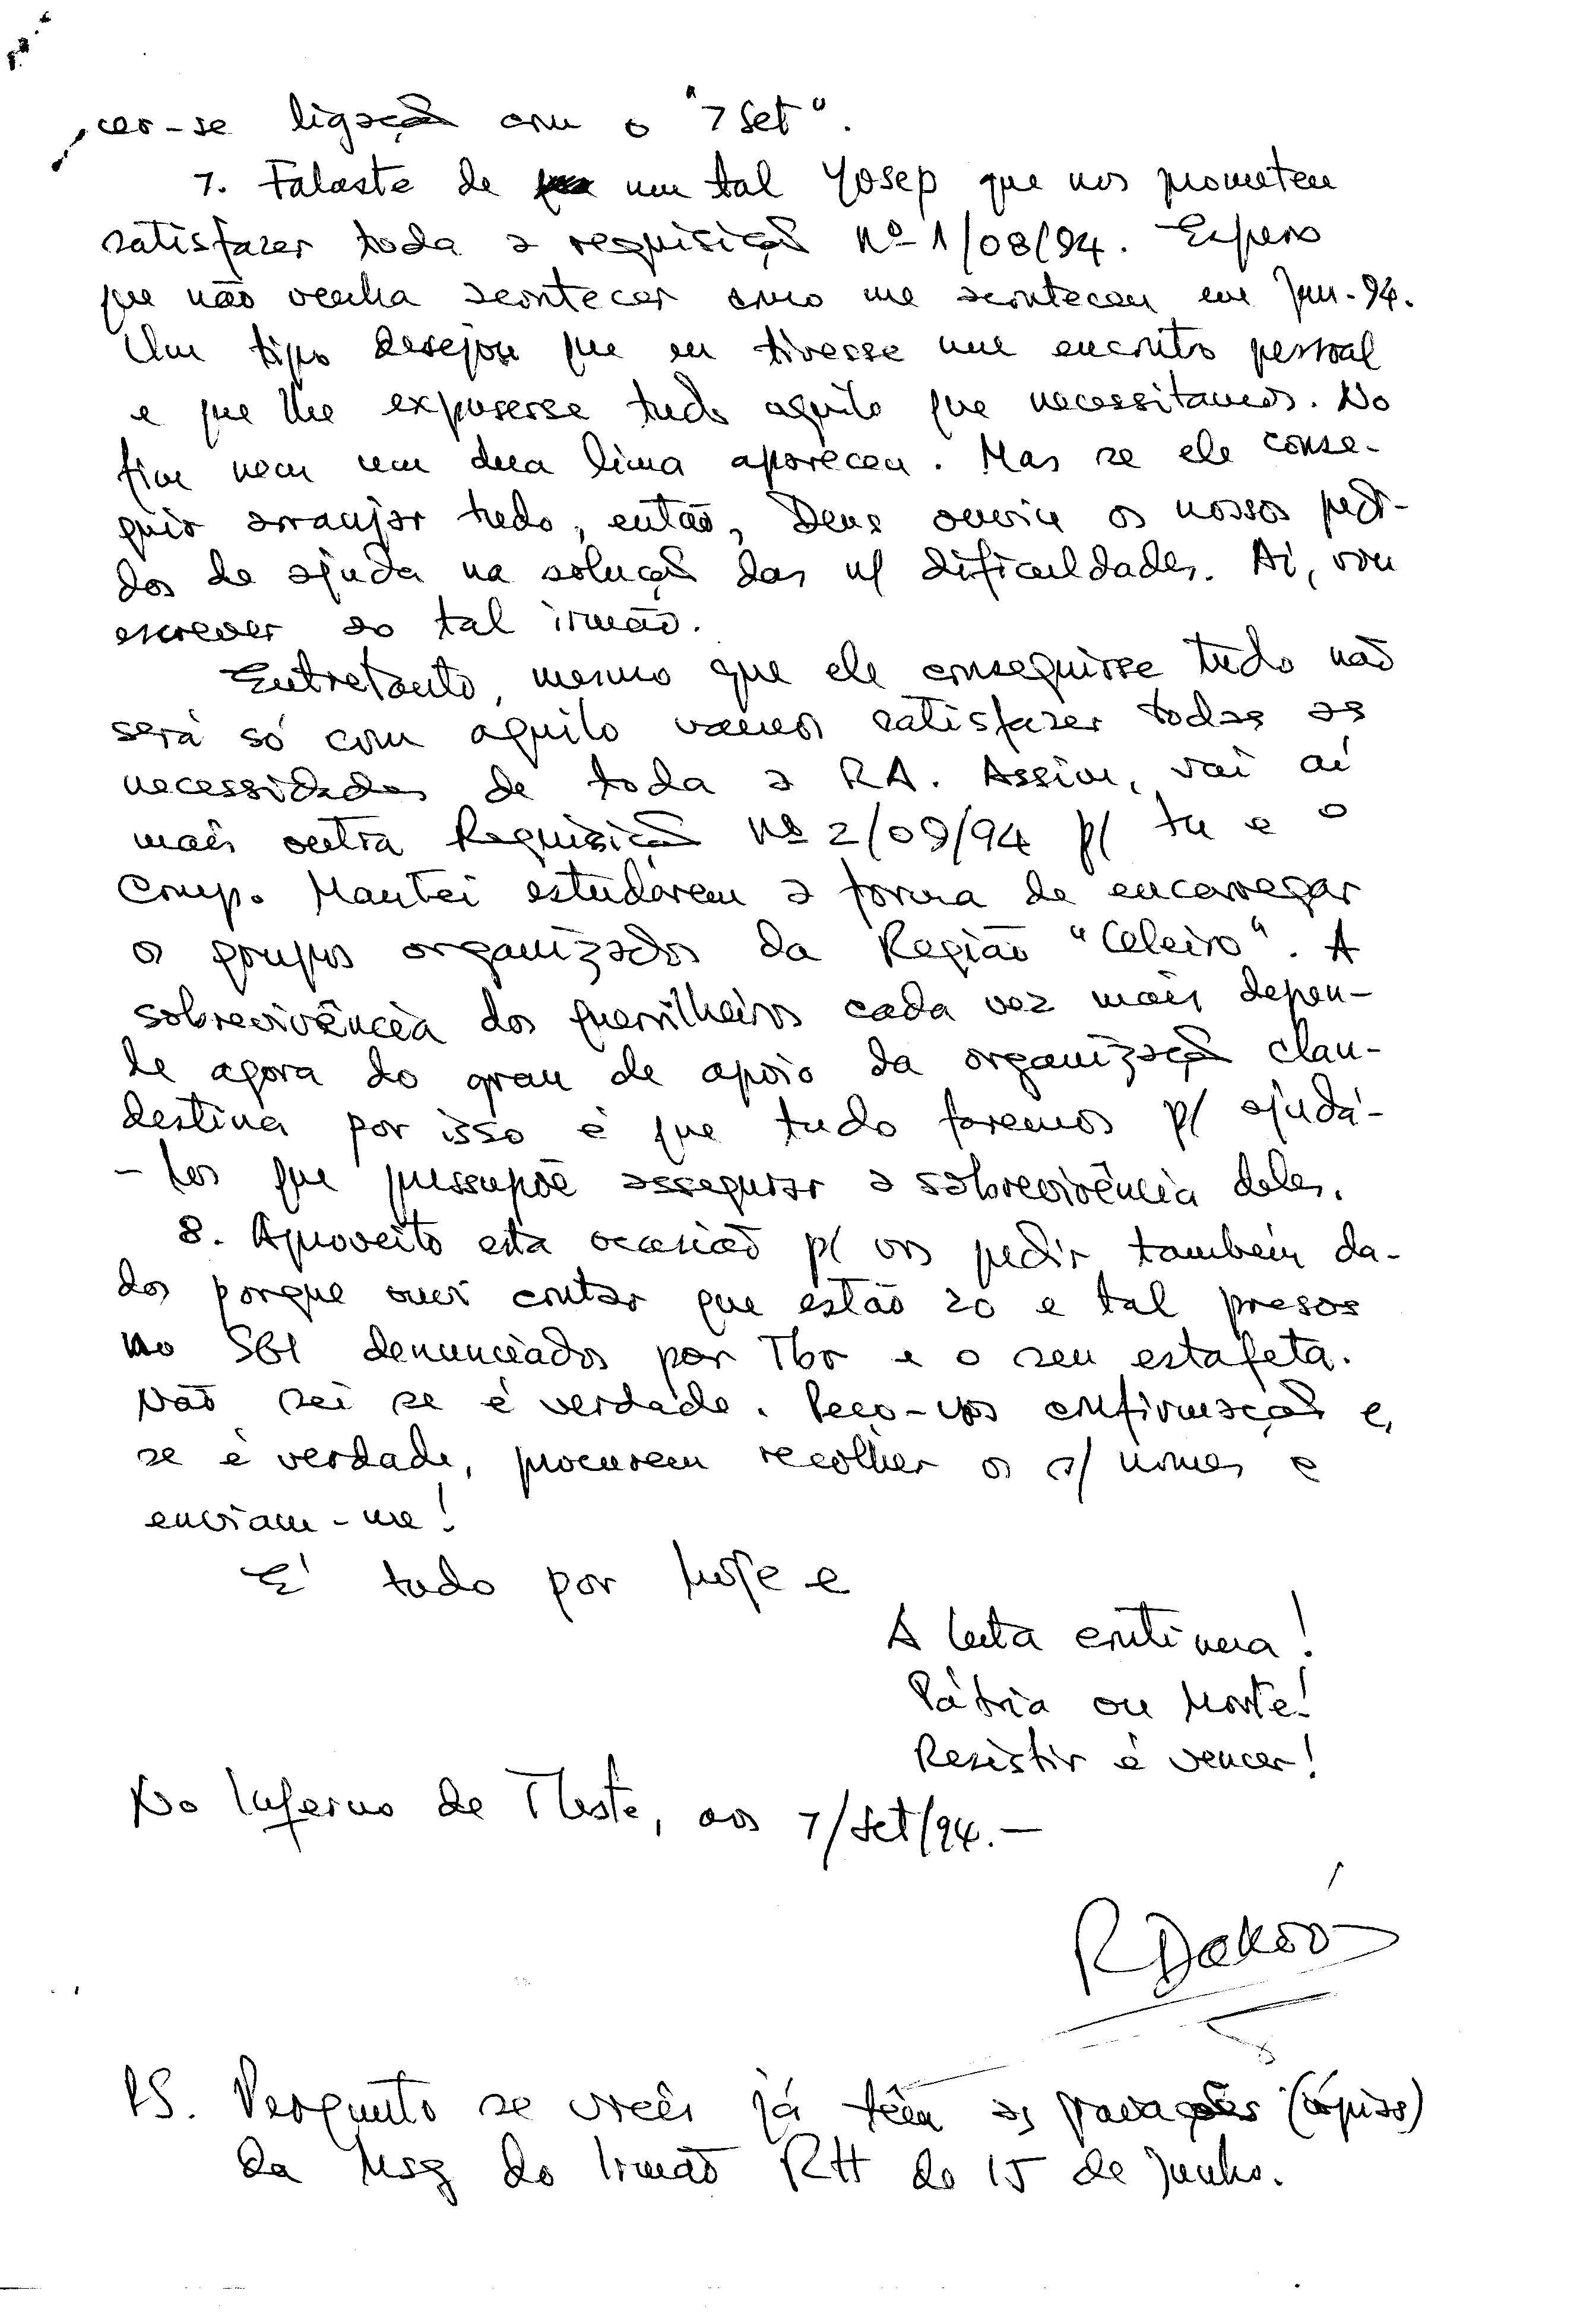 cer-se ligação com o "7 Set".
7. Falaste de um tal Yosep que nos prometeu
satisfazer toda a requisição Nº 1/08/94. Espero
que não venha acontecer como me aconteceu em Jun-94.
Um tipo desejou que eu tivesse um encontro pessoal
e que lhe expusesse tudo aquilo que necessitamos. No
fim nem um lima apareceu. Mas se ele conse-
guir arranjar tudo, então, Deus ouviu os nossos pedi-
dos de ajuda na solução das n/ dificuldades. Aí, vou
escrever ao tal irmão.
Entretanto, mesmo que ele conseguisse tudo não
será só com aquilo vamos satisfazer todas as
necessidades de toda a RA. Assim, vai aí
mais outra Requisição Nº 2/09/94 p/ tu e o
Comp. Mantei estudarem a forma de encarregar
os grupos organizados da Região "Celeiro". A
sobrevivência dos guerrilheiros cada vez mais depen-
de agora do grau de apoio da organização clan-
destina por isso é que tudo faremos p/ ajudá-
-los que pressupõe assegurar a sobrevivência deles.
8. Aproveito esta ocasião p/ vos pedir também da-
dos porque ouvi contar que estão 20 e tal presos
no SGI denunciados por Tbr e o seu estafeta.
Não sei se é verdade. Peço-vos confirmação e,
se é verdade, procurem recolher os s/ nomes e
enviam-me!
É tudo por hoje e
A luta continua!
Pátria ou Morte!
Resistir é vencer!
No Inferno de TLeste, aos 7/Set/94.—
PS. Pergunto se vocês já têm as gravações (cópias)
da Msg do Irmão RH do 15 de Junho.